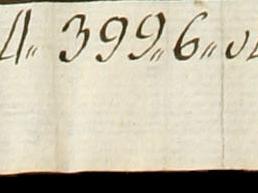 4" 399" 6" 0